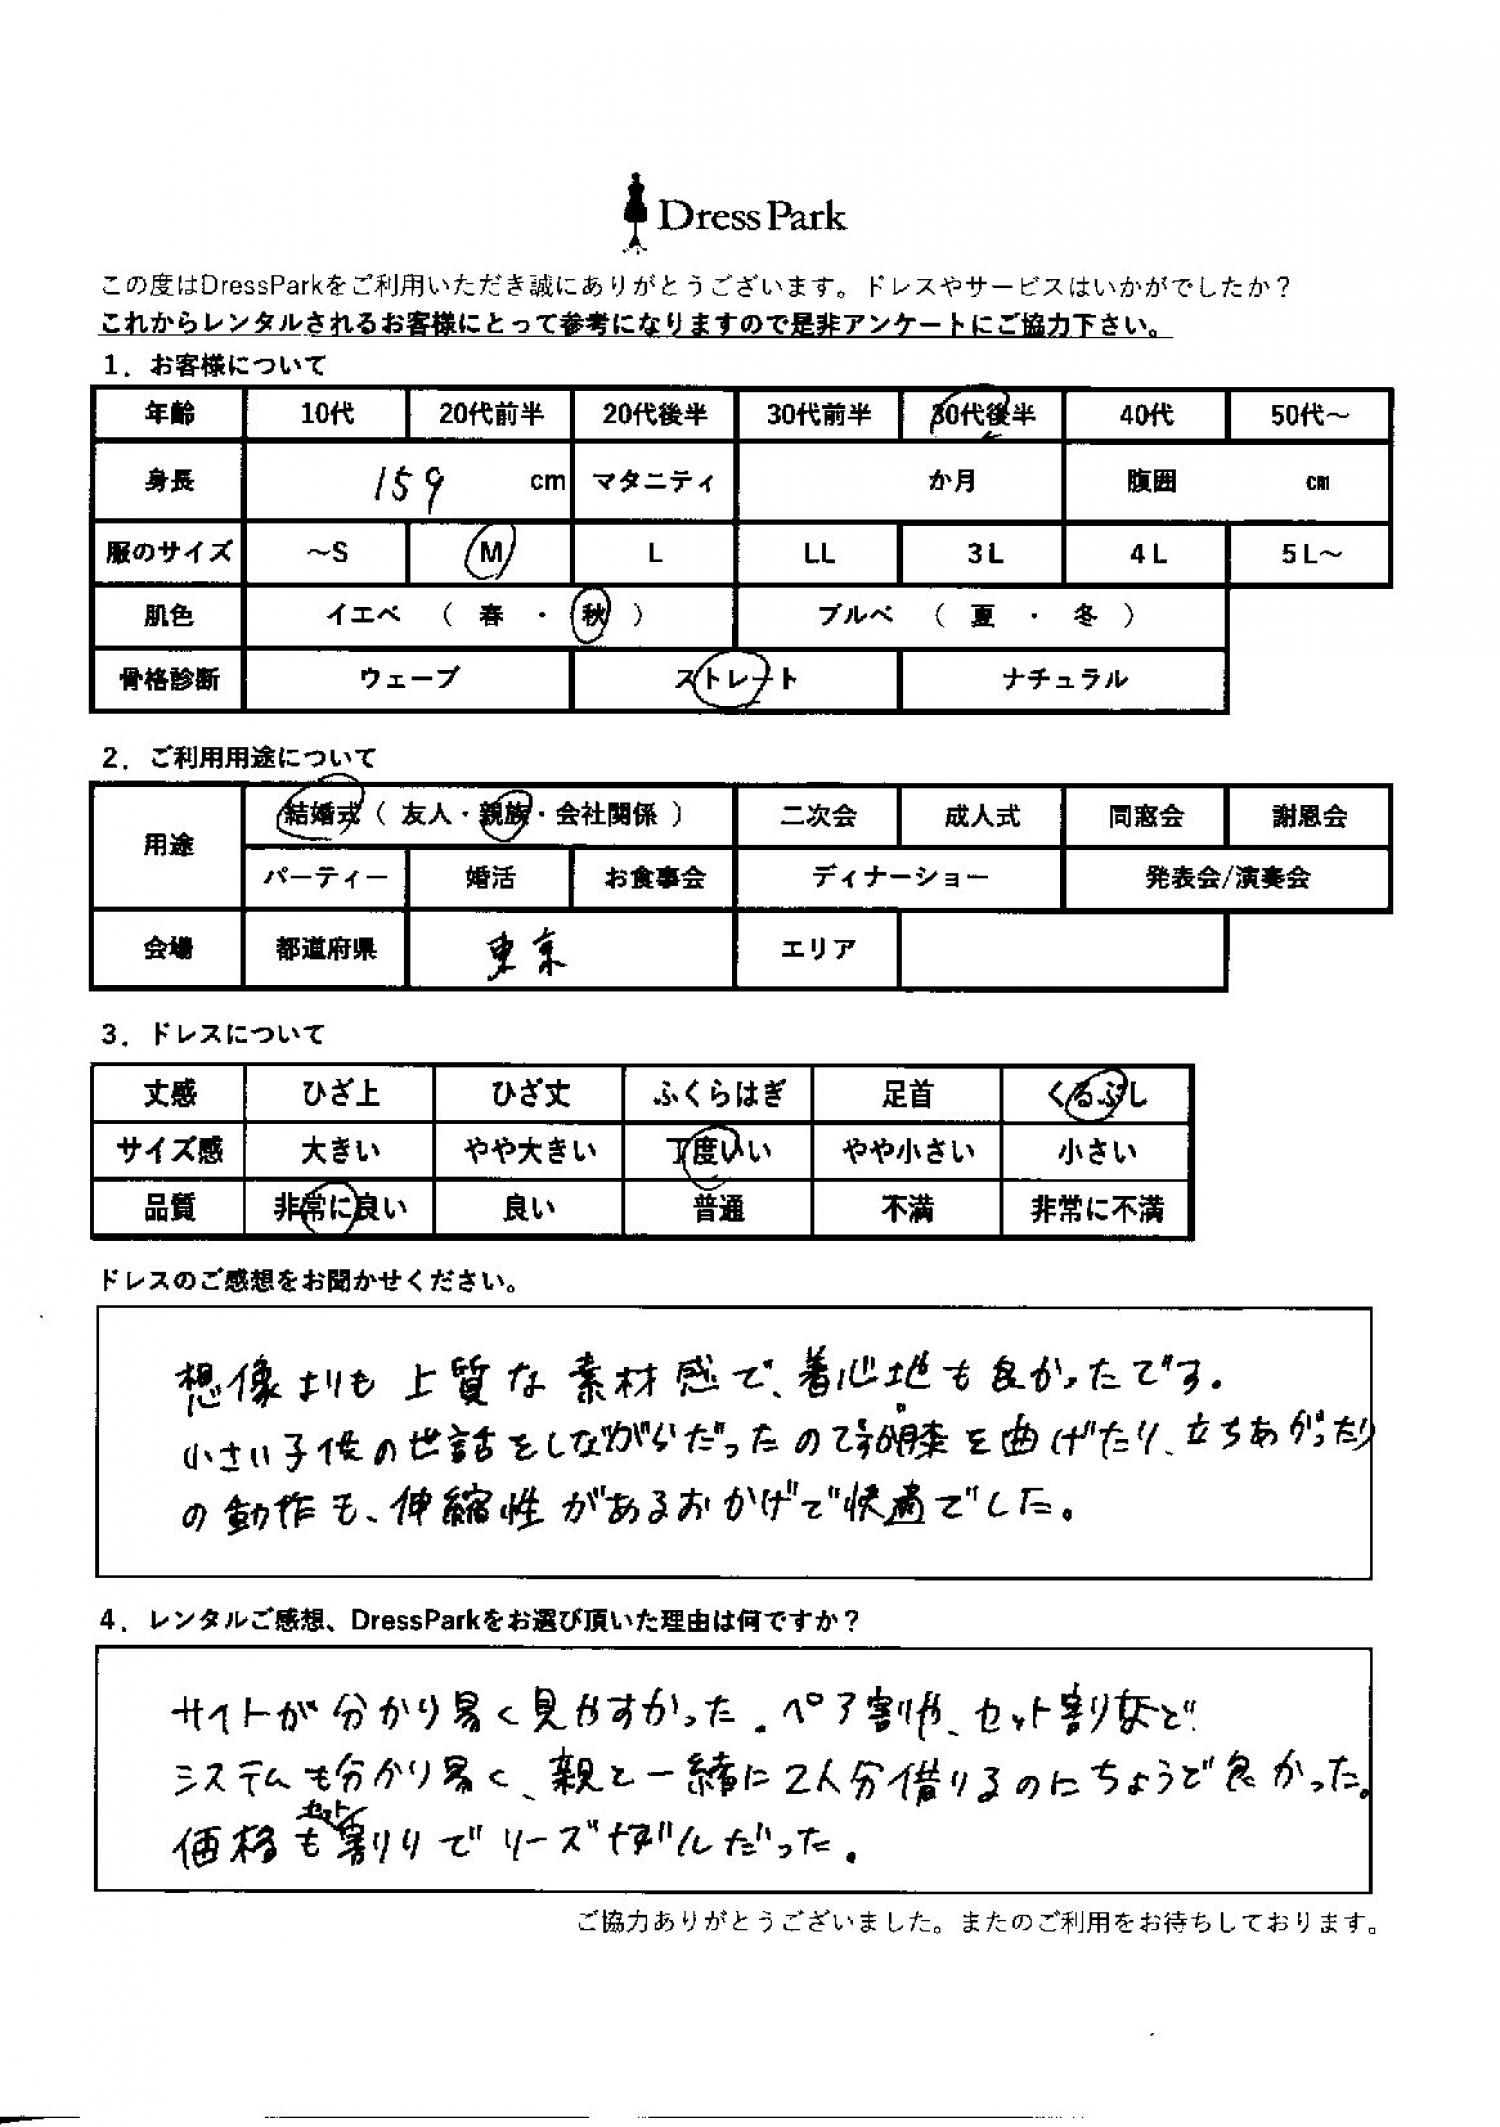 Dress Park
この度はDressParkをご利用いただき誠にありがとうございます。ドレスやサービスはいかがでしたか？
これからレンタルされるお客様にとって参考になりますので是非アンケートにご協力下さい。
1．お客様について
年齢 10代 20代前半 20代後半 30代前半 30代後半 40代 50代～
身長 159 cm マタニティ か月 腹囲 cm
服のサイズ ～S M L LL 3L 4L 5L～
肌色 イエベ （ 春 ・ 秋 ） ブルベ （ 夏 ・ 冬 ）
骨格診断 ウェーブ ストレート ナチュラル
2．ご利用用途について
用途 結婚式（ 友人・親族・会社関係 ） 二次会 成人式 同窓会 謝恩会
パーティー 婚活 お食事会 ディナーショー 発表会/演奏会
会場 都道府県 東京 エリア
3．ドレスについて
丈感 ひざ上 ひざ丈 ふくらはぎ 足首 くるぶし
サイズ感 大きい やや大きい 丁度いい やや小さい 小さい
品質 非常に良い 良い 普通 不満 非常に不満
ドレスのご感想をお聞かせください。
想像よりも上質な素材感で、着心地も良かったです。
小さい子供の世話をしながらだったので膝を曲げたり、立ちあがったり
の動作も、伸縮性があるおかげで快適でした。
4．レンタルご感想、DressParkをお選び頂いた理由は何ですか？
サイトが分かり易く見やすかった。ペア割や、セット割など
システムも分かり易く、親と一緒に2人分借りるのにちょうど良かった。
価格もセット割りでリーズナブルだった。
ご協力ありがとうございました。またのご利用をお待ちしております。